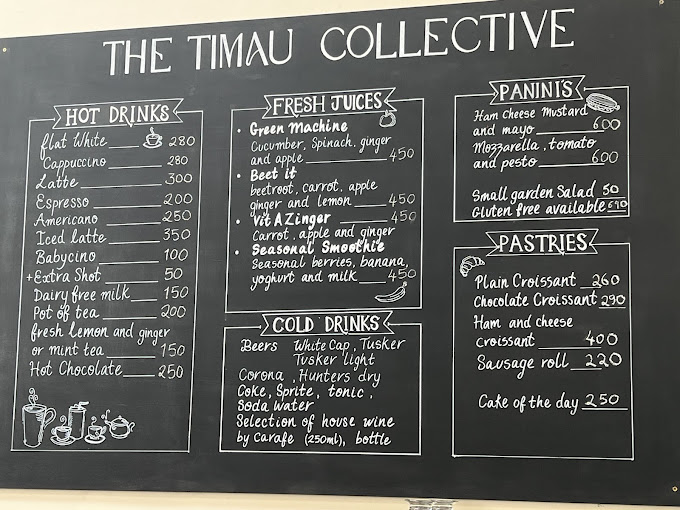 THE TIMAU COLLECTIVE
HOT DRINKS
flat White 280
Cappuccino 280
Latte 300
Espresso 200
Americano 250
Iced latte 350
Babycino 100
+Extra Shot 50
Dairy free milk 150
Pot of tea 200
fresh lemon and ginger
or mint tea 150
Hot Chocolate 250
FRESH JUICES
• Green Machine
Cucumber, Spinach, ginger
and apple 450
• Beet it
beetroot, carrot, apple
ginger and lemon 450
• Vit A Zinger 450
Carrot, apple and ginger
• Seasonal Smoothie
Seasonal berries, banana,
yoghurt and milk 450
COLD DRINKS
Beers White Cap, Tusker
Tusker light
Corona, Hunters dry
Coke, Sprite, tonic,
Soda Water
Selection of house wine
by Carafe (250ml), bottle
PANINI'S
Ham cheese mustard
and mayo 600
Mozzarella, tomato
and pesto 600
Small garden Salad 50
Gluten free available
PASTRIES
Plain Croissant 260
Chocolate Croissant 290
Ham and cheese
croissant 400
Sausage roll 220
Cake of the day 250